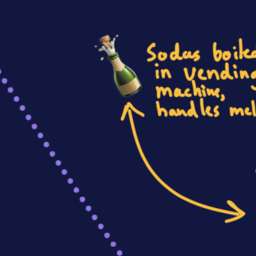 Sodas boile
in vending
machine,
handles mel